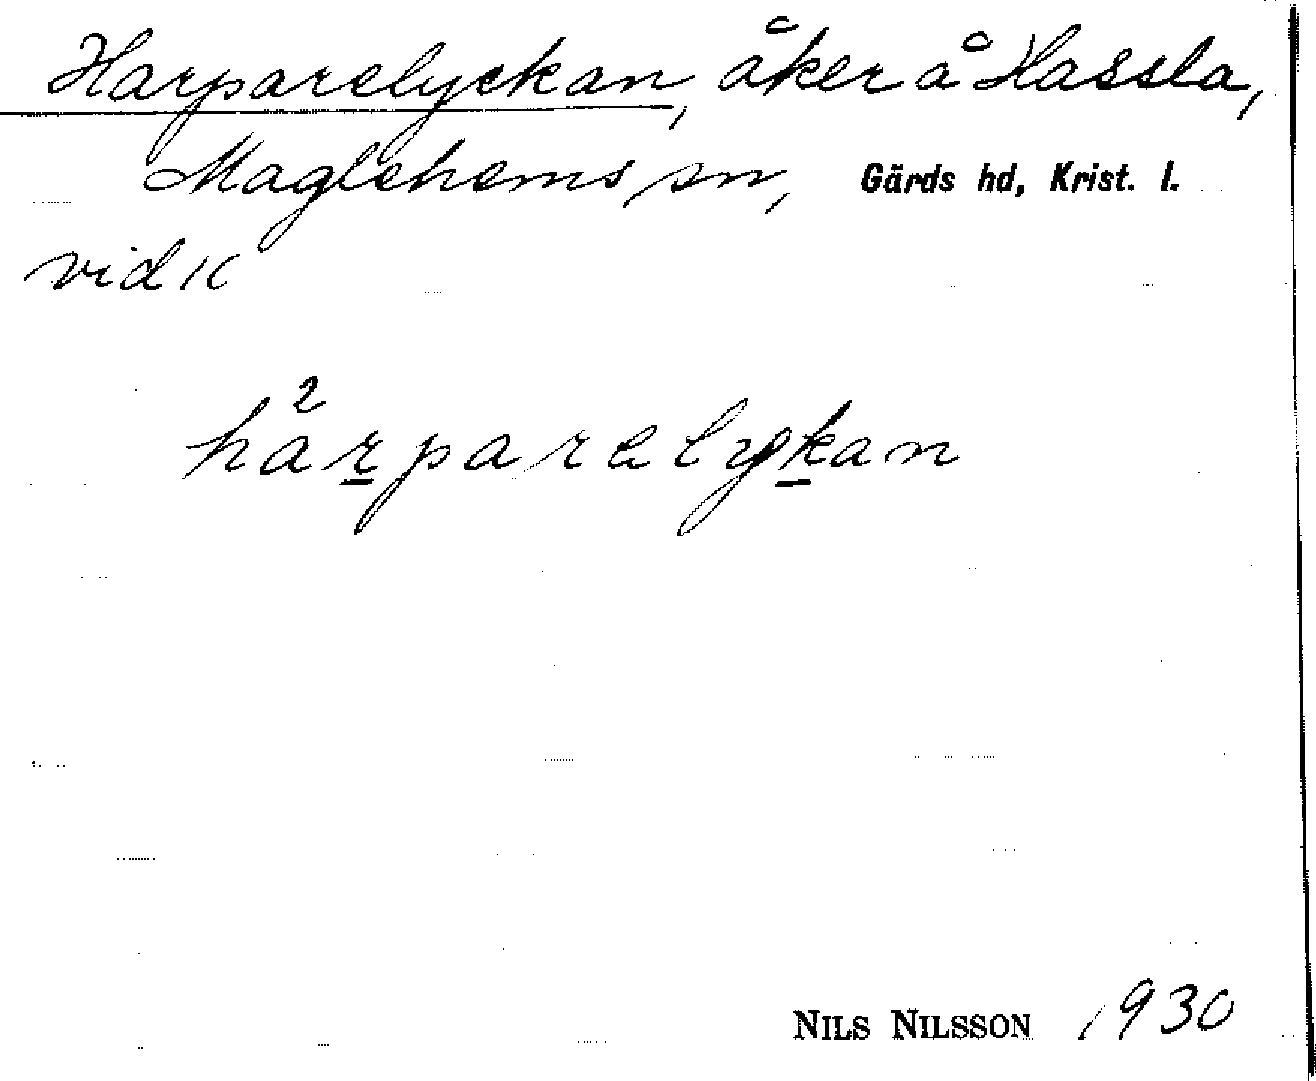 Harparelyckan, åker å Hassla,
Maglehems sn, Gärds hd, Krist. l.
vid K
ha²rparelykan
NILS NILSSON 1930